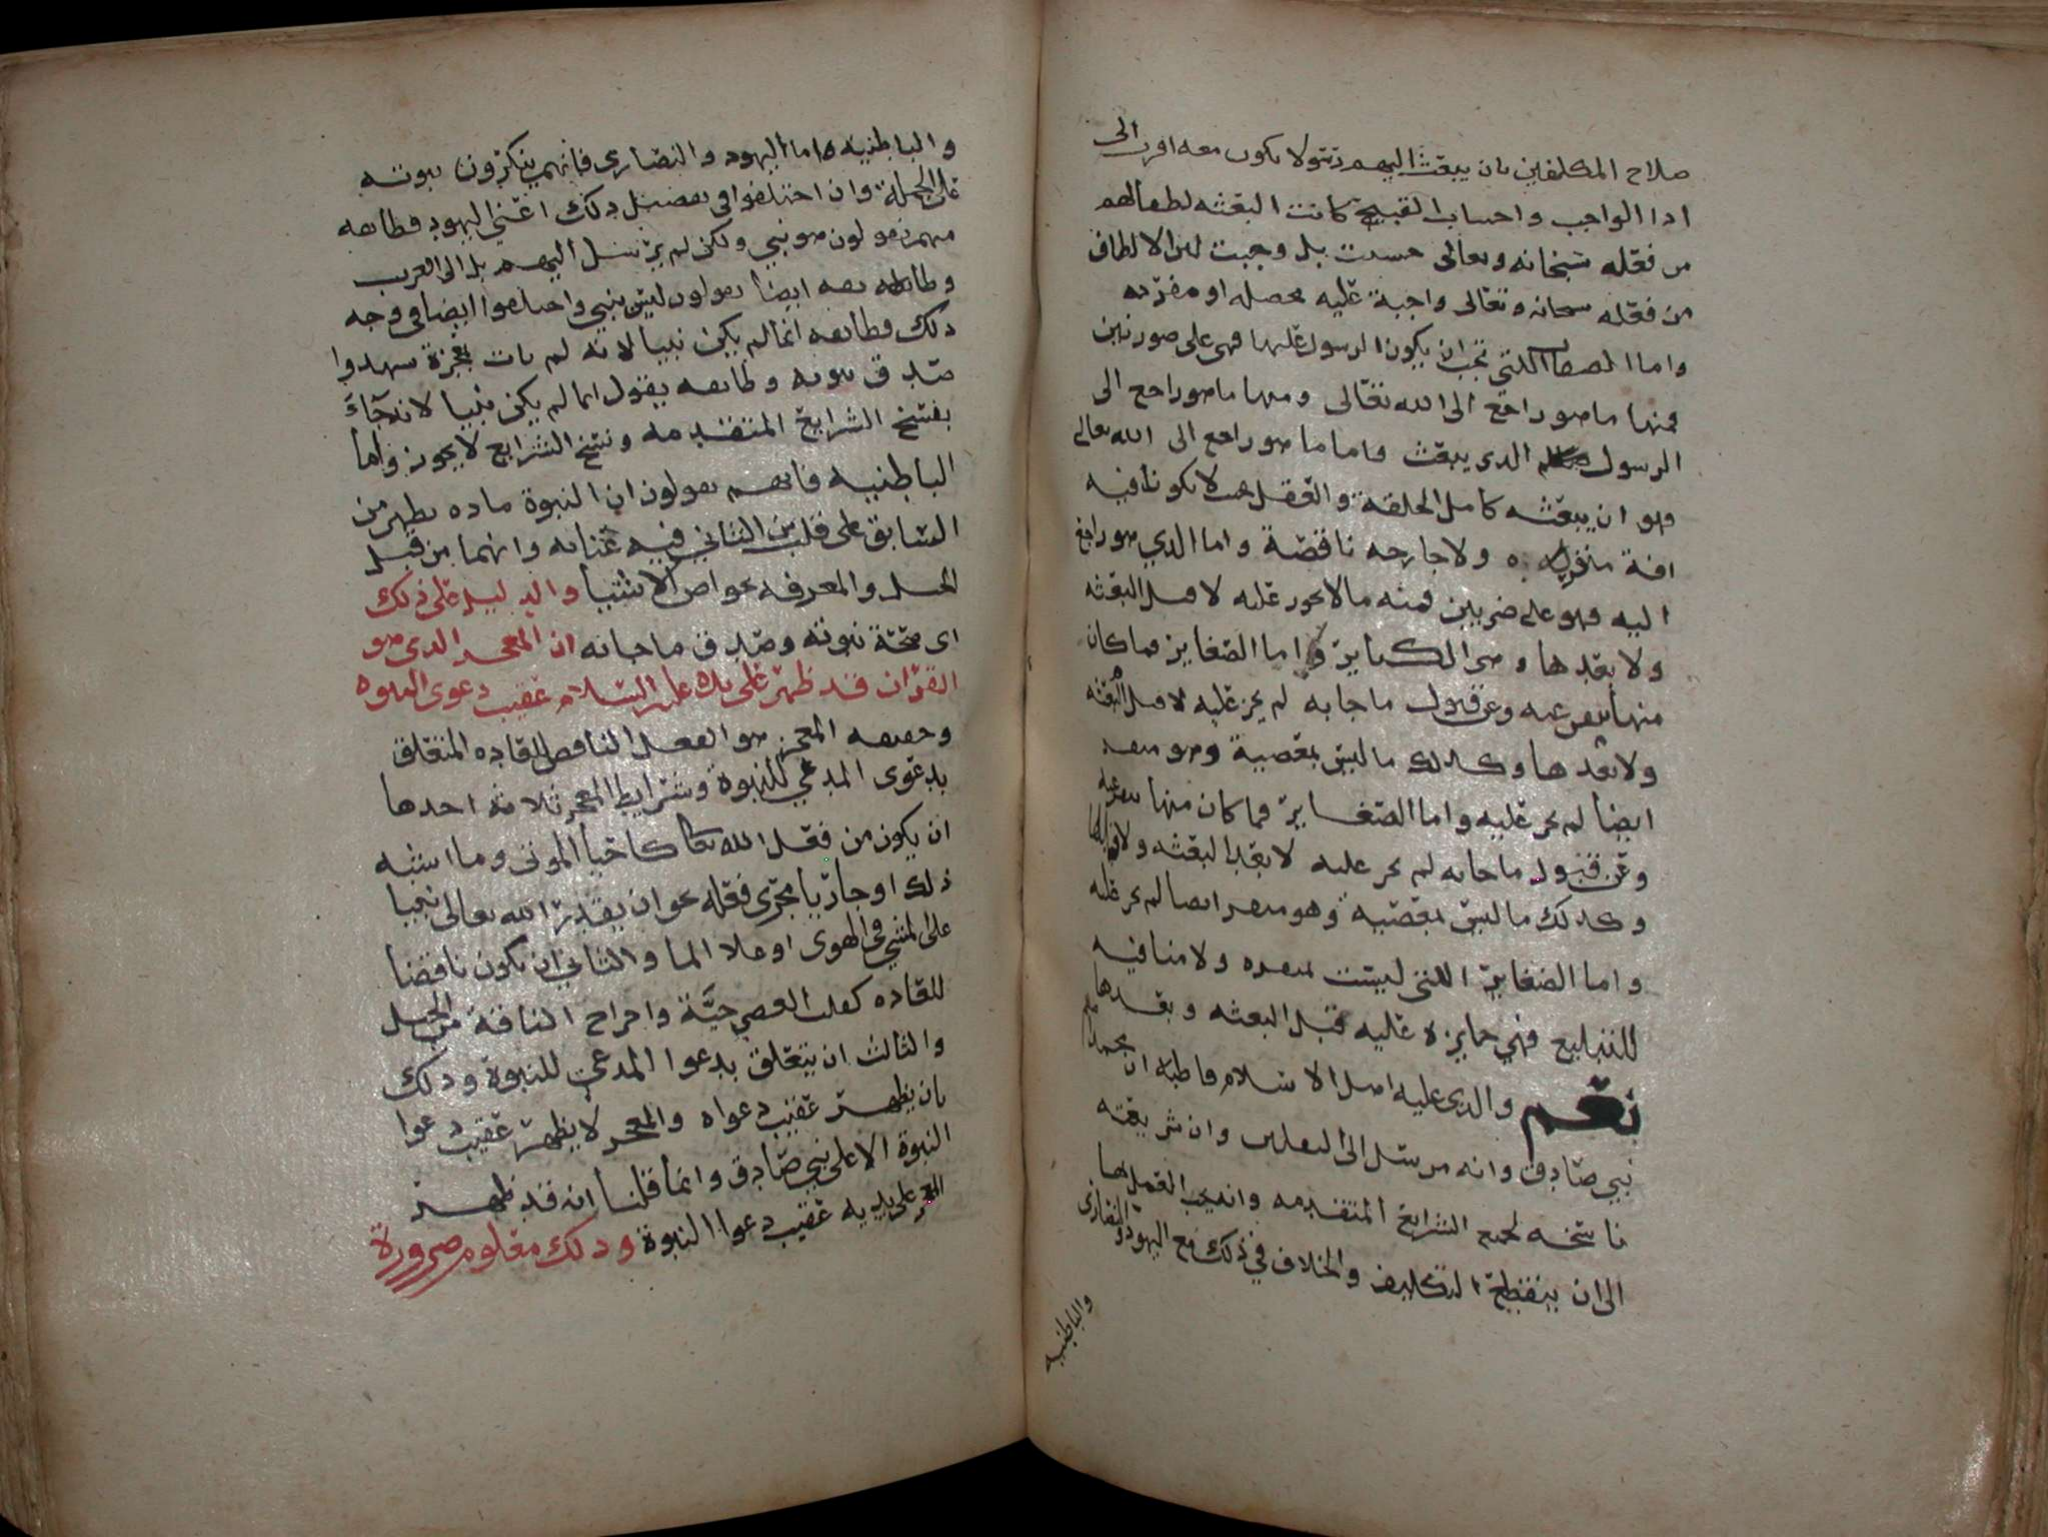 صلاح المكلفين بان يبعث اليهم رسولا يكون معه اقرب الى
اداا الواجب واجتناب القبيح كانت البعثه لطفا لهم
من فعله سبحانه وتعالى حسنت بل وجبت لان الالطاف
من فعله سبحانه وتعالى واجبة عليه محصله او مقربه
واما الصفات اللتي تجب ان يكون الرسول عليها فهي على صورتين
فمنها ما هو راجع الى الله تعالى ومنها ما هو راجع الى
الرسول الدي يبعث فاما ما هو راجع الى الله تعالى
فهو ان يبعثه كامل الخلقة والعقل لا يكون فيه
افة منفره ولا جارحه ناقصة واما الدي هو راجع
اليه فهو على ضربين فمنه ما لا يجوز عليه لا قبل البعثه
ولا بعدها وهي الكباير واما الصغاير فما كان
منها ينفر عنه وعن قبول ما جا به لم يجز عليه لا قبل البعثه
ولا بعدها وكدلك ما ليس بمعصية وهو منفر
ايضا لم يجز عليه واما الصغاير فما كان منها ينفر عنه
وعن قبول ما جا به لم يجز عليه لا بعد البعثه ولا قبلها
وكدلك ما ليس بمعصيه وهو منفر ايضا لم يجز عليه
واما الصغاير اللتي ليست بمنفره ولا منافيه
للتبليغ فهي جايزه عليه قبل البعثه وبعدها
نعم والدي عليه اهل الاسلام قاطبة ان محمدا
نبي صادق وانه مرسل الى الثقلين وان شريعته
ناسخه لجميع الشرايع المتقدمه وانه يجب العمل بها
الى ان ينقطع التكليف والخلاف في ذلك مع اليهود والنصارى
والباطنيه
والباطنيه واما اليهود والنصارى فانهم ينكرون نبوته
على الجملة وان اختلفوا في تفصيل دلك اعني اليهود فطائفه
منهم يقولون هو نبي ولكن لم يرسل اليهم بل الى العرب
وطائفه ايضا يقولون ليس بنبي واختلفوا ايضا في وجه
دلك فطائفه انما لم يكن نبيا لانه لم يات بمعجزة شهدوا
صدق نبوته وطائفه يقول انما لم يكن نبيا لانه جآء
بفسخ الشرايع المتقدمه ونسخ الشرايع لا يجوز واما
الباطنيه فانهم يقولون ان النبوة ماده تظهر من
السابق على قلب من التاني فيه عنايه وانهما من قبل
الحيل والمعرفه بخواص الاشيا والدليل على ذلك
اى صحة نبوته وصدق ما جا به ان المعجز الدي هو
القران قد ظهر على يده عليه السلام عقيب دعوى النبوه
وحقيقه المعجز هو الفعل الناقض للعاده المتعلق
بدعوى المدعي للنبوة وشرايط المعجز ثلاثه احدها
ان يكون من فعل الله تعا كاحيا الموتى وما اشبه
ذلك او جاريا مجرى فعله نحو ان يقدر الله تعالى نبيا
على المشي في الهوى او علا الما والثاني ان يكون ناقضا
للعاده كقلب العصى حيَّة واخراج الناقة من الجبل
والثالث ان يتعلق بدعوا المدعي للنبوة ودلك
بان يظهر عقيب دعواه والمعجز لا يظهر عقيب دعوا
النبوة الا على نبي صادق وانما قلنا انه قد ظهر
المعجز على يديه عقيب دعوا النبوة ودلك معلوم ضرورة